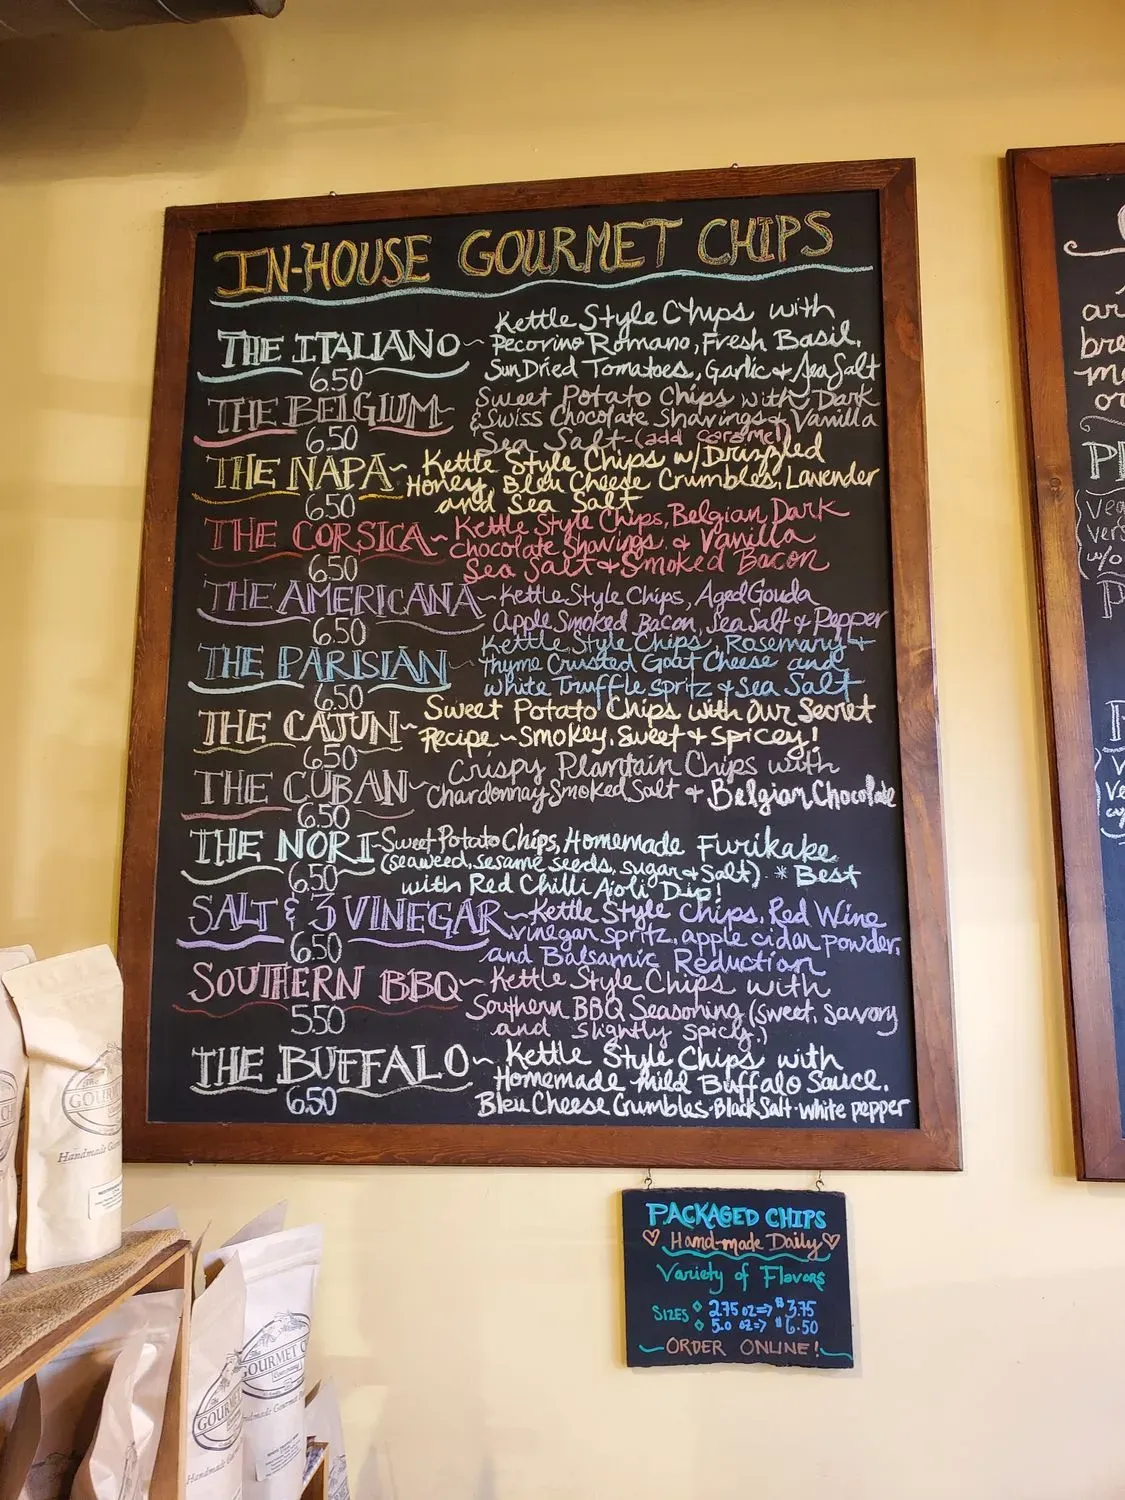 IN-HOUSE GOURMET CHIPS
THE ITALIANO~ Kettle Style Chips with
Pecorino Romano, Fresh Basil,
Sun Dried Tomatoes, Garlic + Sea Salt
6.50
THE BELGIUM~ Sweet Potato Chips with Dark
& Swiss Chocolate Shavings + Vanilla
Sea Salt - (add caramel)
6.50
THE NAPA~ Kettle Style Chips w/ Drizzled
Honey, Bleu Cheese Crumbles, Lavender
and Sea Salt
6.50
THE CORSICA~ Kettle Style Chips, Belgian Dark
Chocolate Shavings + Vanilla
Sea Salt + Smoked Bacon
6.50
THE AMERICANA~ Kettle Style Chips, Aged Gouda
Apple Smoked Bacon, Sea Salt + Pepper
6.50
THE PARISIAN~ Kettle Style Chips, Rosemary +
Thyme Crusted Goat Cheese and
White Truffle spritz + Sea Salt
6.50
THE CAJUN~ Sweet Potato Chips with our Secret
Recipe ~ Smokey, Sweet + Spicey!
6.50
THE CUBAN~ Crispy Plantain Chips with
Chardonnay Smoked Salt + Belgian Chocolate
6.50
THE NORI~ Sweet Potato Chips, Homemade Furikake
(seaweed, sesame seeds, sugar + Salt) * Best
with Red Chilli Aioli Dip!
6.50
SALT & 3 VINEGAR~ Kettle Style Chips, Red Wine
vinegar spritz, apple cidar powder,
and Balsamic Reduction
6.50
SOUTHERN BBQ~ Kettle Style Chips with
Southern BBQ Seasoning (sweet, savory
and slightly spicy.)
5.50
THE BUFFALO~ Kettle Style Chips with
Homemade Mild Buffalo Sauce,
Bleu Cheese Crumbles · Black Salt · White pepper
6.50
PACKAGED CHIPS
♡ Hand-made Daily ♡
Variety of Flavors
SIZES ◇ 2.75 oz => $3.75
◇ 5.0 oz => $6.50
~ORDER ONLINE!~
GOURMET
Handmade
GOURMET
GOURMET
Handmade